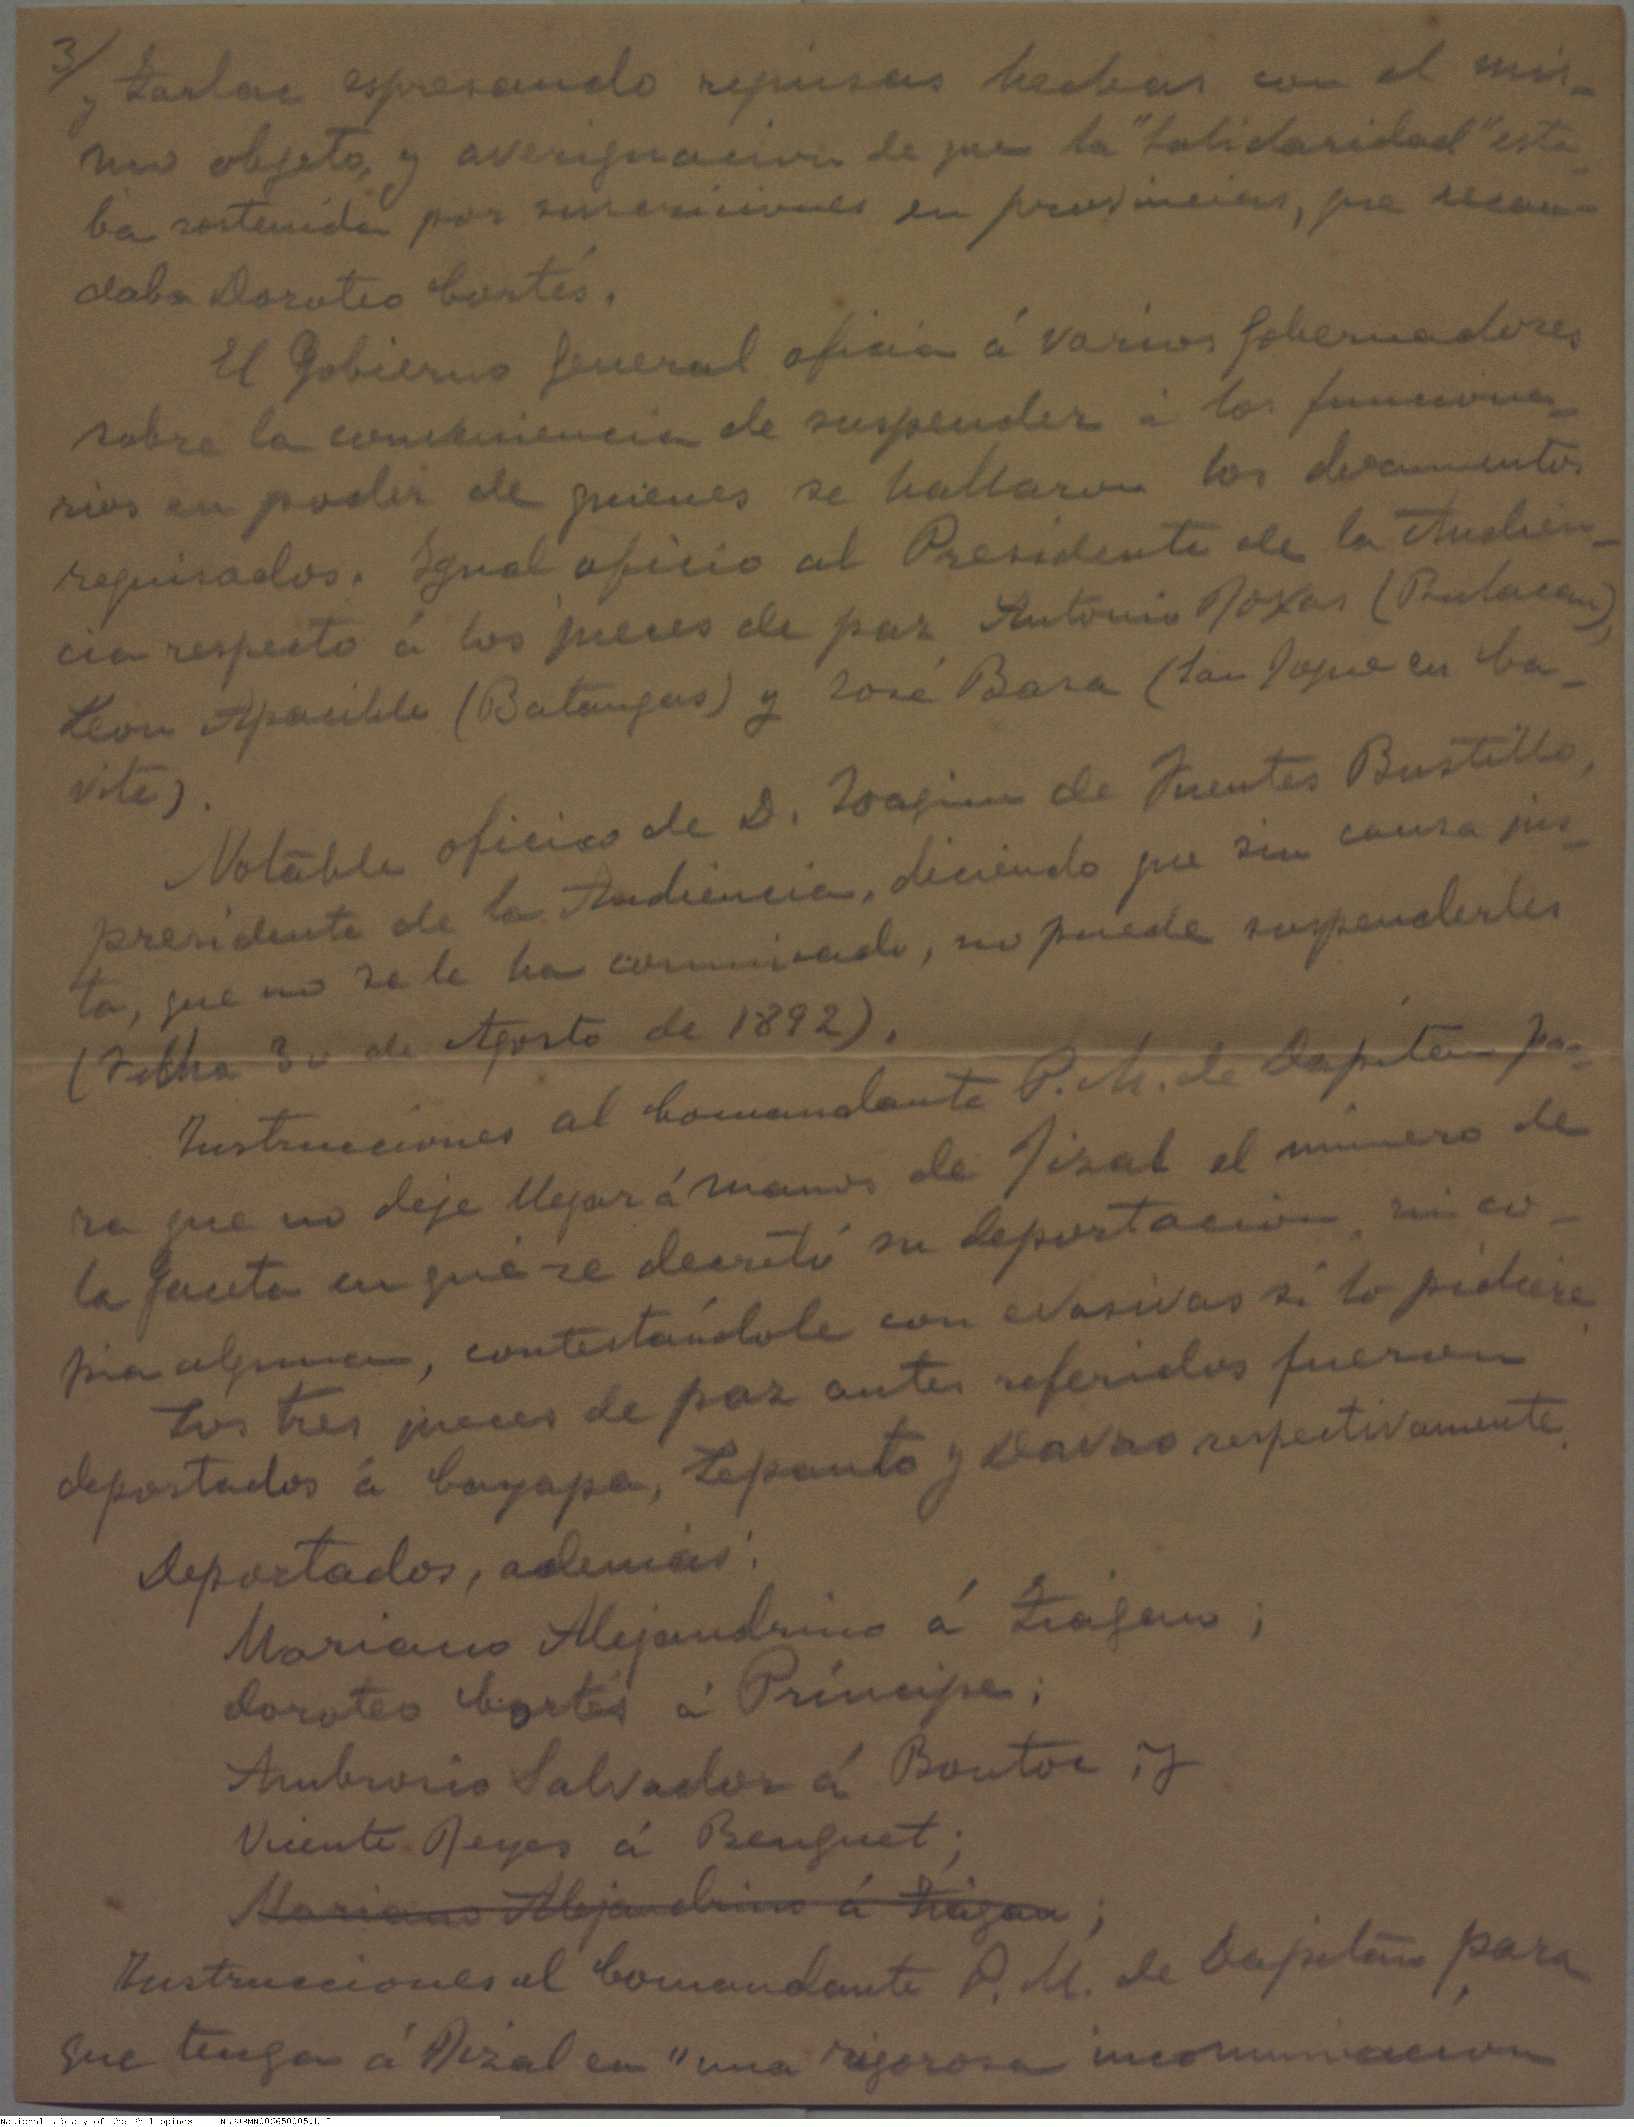 3/
y Tarlac espresando requisas hechas con el mis-
mo objeto, y averiguacion de que la "Solidaridad" esta-
ba sostenida por suscriciones en provincias, que recau-
daba Doroteo Cortés.
El Gobierno General oficia á varios Gobernadores
sobre la conveniencia de suspender á los funciona-
rios en poder de quienes se hallaron los documentos
requisados. Igual oficio al Presidente de la Audien-
cia respecto á los jueces de paz Antonio Roxas (Bulacan),
Leon Apacible (Batangas) y José Basa (San Roque en Ca-
vite).
Notable oficio de D. Joaquin de Fuentes Bustillo,
presidente de la Audiencia, diciendo que sin causa jus-
ta, que no se le ha comunicado, no puede suspenderles
(Fecha 30 de Agosto de 1892).
Instrucciones al Comandante P. M. de Dapitan pa-
ra que no deje llegar á manos de Rizal el número de
la Gaceta en que se decretó su deportacion, ni co-
pia alguna, contestándole con evasivas si lo pidiere.
Los tres jueces de paz antes referidos fueron
deportados á Cayapa, Lepanto y Davao respectivamente.
Deportados, además:
Mariano Alejandrino á Tiagan;
Doroteo Cortés á Príncipe;
Ambrosio Salvador á Bontoc; y
Vicente Reyes á Benguet;
Mariano Alejandrino á Tiagan;
Instrucciones al Comandante P. M. de Dapitan, para
que tenga á Rizal en "una rigorosa incomunicacion
National Library of the Philippines